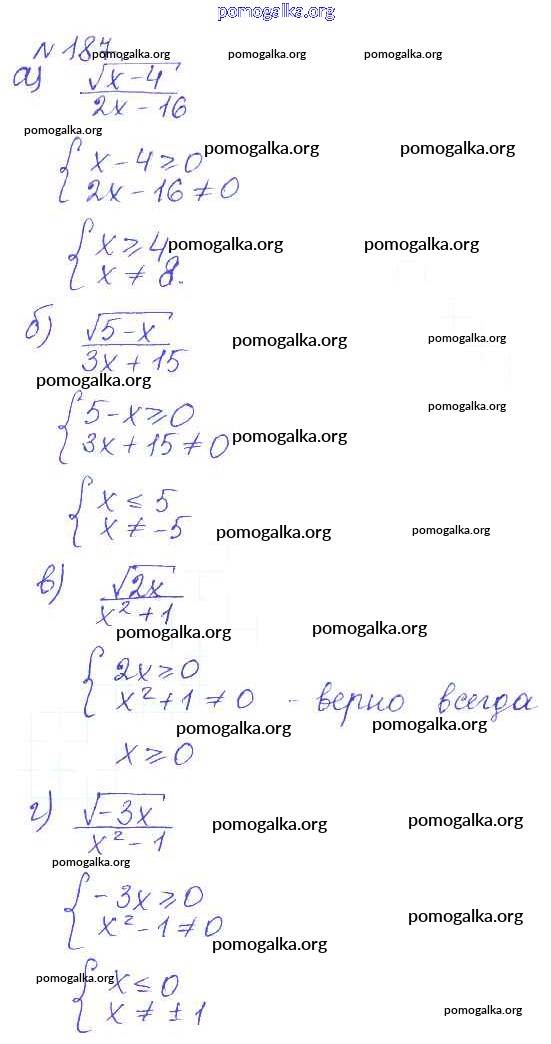 pomogalka.org
N 187 pomogalka.org pomogalka.org pomogalka.org
а) √x-4
2x-16
pomogalka.org
{ x-4≥0 pomogalka.org pomogalka.org
2x-16≠0
{ x≥4 pomogalka.org pomogalka.org
x≠8.
б) √5-x pomogalka.org pomogalka.org
3x+15
pomogalka.org
{ 5-x≥0 pomogalka.org
3x+15≠0 pomogalka.org
{ x≤5
x≠-5 pomogalka.org pomogalka.org
в) √2x
x²+1
pomogalka.org pomogalka.org
{ 2x≥0
x²+1≠0 - верно всегда
pomogalka.org pomogalka.org
x≥0
г) √-3x pomogalka.org pomogalka.org
x²-1
pomogalka.org
{ -3x≥0
x²-1≠0 pomogalka.org
pomogalka.org
pomogalka.org { x≤0
x≠±1 pomogalka.org